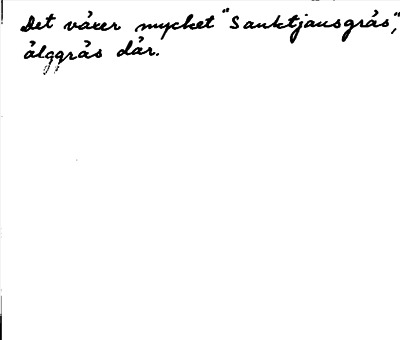 Det växer mycket "Sanktjansgräs",
älggräs där.